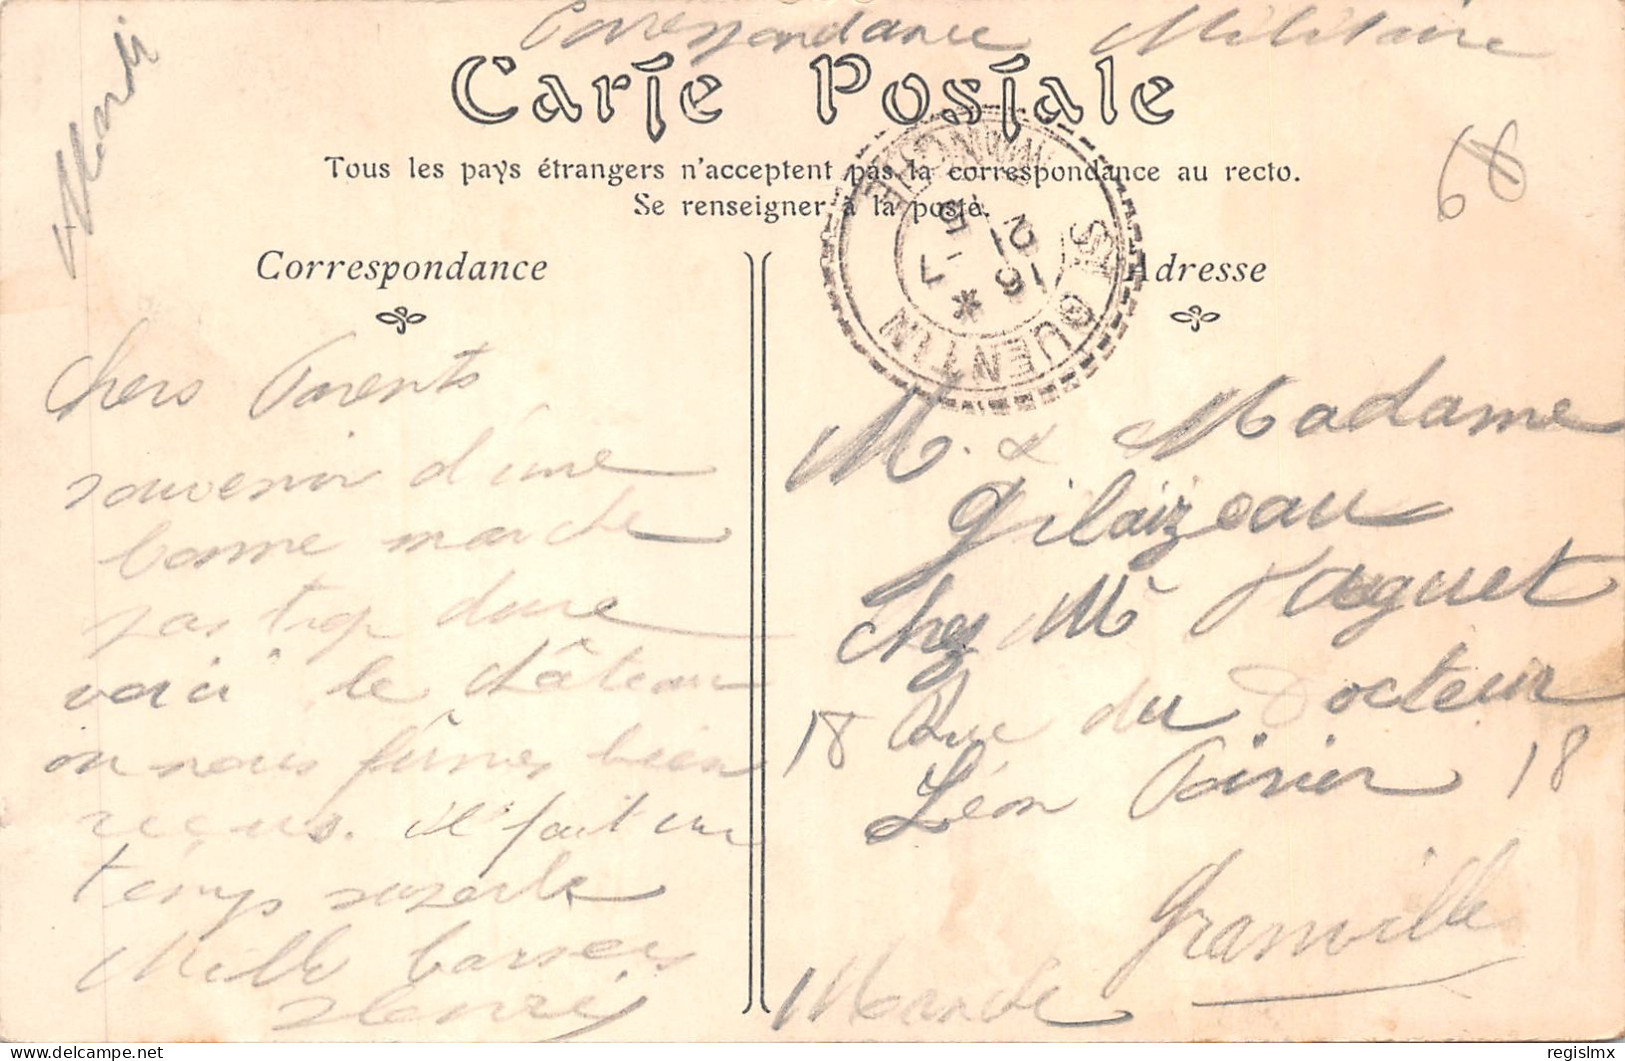 Correspondance Militaire
Mardi
Carte Postale
Tous les pays étrangers n'acceptent pas la correspondance au recto.
Se renseigner à la poste.
Correspondance
Adresse
ST QUENTIN
MANCHE
16 - 7
21
5
68
Chers Parents
souvenir d'une
bonne marche
pas trop dure
voici le château
où nous fûmes bien
reçus. il fait un
temps superbe
Mille baisers
Henri
M. & Madame
Gilaizeau
chez Mr Paquet
18 Rue du Docteur
Léon Poirier 18
Granville
Manche
regislmx